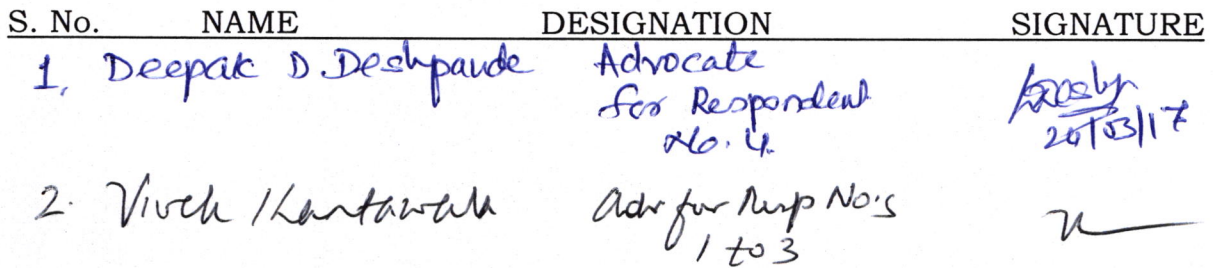 S. No. NAME DESIGNATION SIGNATURE
1. Deepak D. Deshpande Advocate
for Respondent
No. 4.
20/03/17
2. Vivek Kantawala Adv for Resp No's
1 to 3